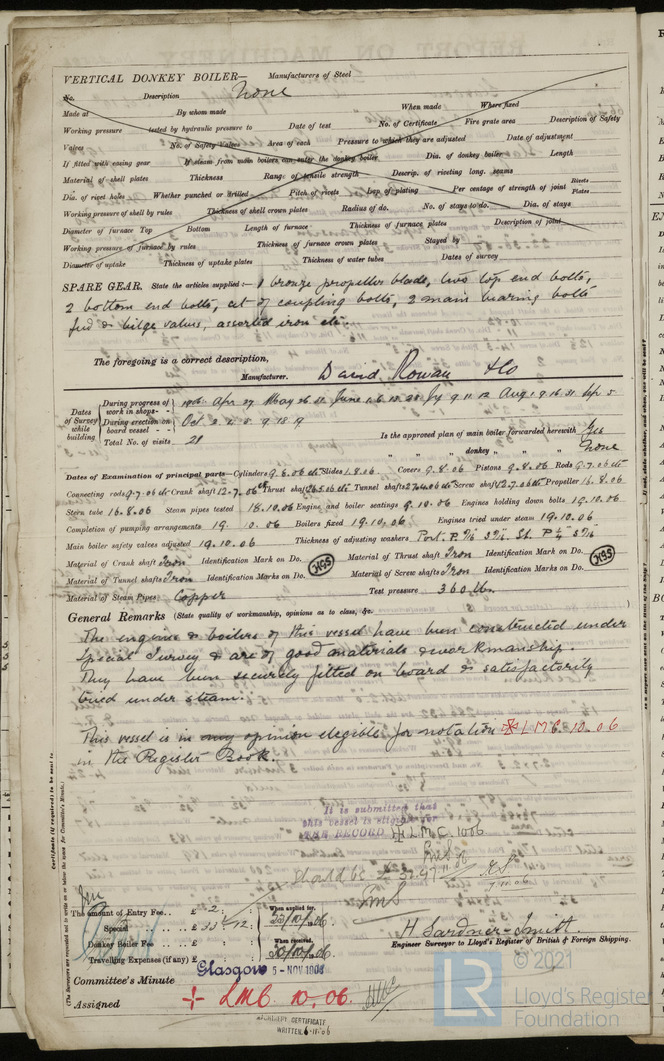 VERTICAL DONKEY BOILER— Manufacturers of Steel
No. Description None
Made at By whom made When made Where fixed
Working pressure tested by hydraulic pressure to Date of test No. of Certificate Fire grate area Description of Safety
Valves No. of Safety Valves Area of each Pressure to which they are adjusted Date of adjustment
If fitted with easing gear If steam from main boilers can enter the donkey boiler Dia. of donkey boiler Length
Material of shell plates Thickness Range of tensile strength Descrip. of riveting long. seams
Dia. of rivet holes Whether punched or drilled Pitch of rivets Lap of plating Per centage of strength of joint Rivets Plates
Working pressure of shell by rules Thickness of shell crown plates Radius of do. No. of stays to do. Dia. of stays
Diameter of furnace Top Bottom Length of furnace Thickness of furnace plates Description of joint
Working pressure of furnace by rules Thickness of furnace crown plates Stayed by
Diameter of uptake Thickness of uptake plates Thickness of water tubes Dates of survey
SPARE GEAR. State the articles supplied:— 1 bronze propeller blade, two top end bolts,
2 bottom end bolts, set of coupling bolts, 2 main bearing bolts
feed & bilge valves, assorted iron etc.
The foregoing is a correct description,
Manufacturer. David Rowan & Co
Dates of Survey while building
During progress of work in shops - - 1906. Apr 27 May 26 31 June 1. 6. 13. 28 Jy 9 11 12 Aug 1 9 16 31 Sep 5
During erection on board vessel - - - Oct 2 4 5 9 18 19
Total No. of visits 21 Is the approved plan of main boiler forwarded herewith Yes
" " " donkey " " " None
Dates of Examination of principal parts—Cylinders 9.8.06 etc Slides 1.8.06 Covers 9.8.06 Pistons 9.8.06 Rods 9.7.06 etc
Connecting rods 9.7.06 etc Crank shaft 12.7.06 Thrust shaft Tunnel shafts Screw shaft 12.7.06 etc Propeller 16.8.06
Stern tube 16.8.06 Steam pipes tested 18.10.06 Engine and boiler seatings 9.10.06 Engines holding down bolts 19.10.06
Completion of pumping arrangements 19.10.06 Boilers fixed 19.10.06 Engines tried under steam 19.10.06
Main boiler safety valves adjusted 19.10.06 Thickness of adjusting washers Port. P.
Material of Crank shaft Iron Identification Mark on Do. HGS Material of Thrust shaft Iron Identification Mark on Do. HGS
Material of Tunnel shafts Iron Identification Marks on Do. Material of Screw shafts Iron Identification Marks on Do.
Material of Steam Pipes Copper Test pressure 360 lbs.
General Remarks (State quality of workmanship, opinions as to class, &c.
The engines & boilers of this vessel have been constructed under
Special Survey & are of good materials & workmanship.
They have been securely fitted on board & satisfactorily
tried under steam.
This vessel is in my opinion elegible for notation ✠ L M C. 10.06
in the Register Book.
It is submitted that
this vessel is eligible for
THE RECORD ✠ L.M.C. 10.06
should be
Certificate (if required) to be sent to
(The Surveyors are requested not to write on or below the space for Committee's Minute.)
The amount of Entry Fee.. £ 2 : : When applied for,
Special .. £ 33 : 12 : 30/10/06
Donkey Boiler Fee .. £ : : When received,
Travelling Expenses (if any) £ : : 30/10/06
H Gardner-Smith.
Engineer Surveyor to Lloyd's Register of British & Foreign Shipping.
Committee's Minute Glasgow 5 - NOV 1906
Assigned + LMC 10.06.
MACHINERY CERTIFICATE
WRITTEN
LR
© 2021
Lloyd's Register
Foundation